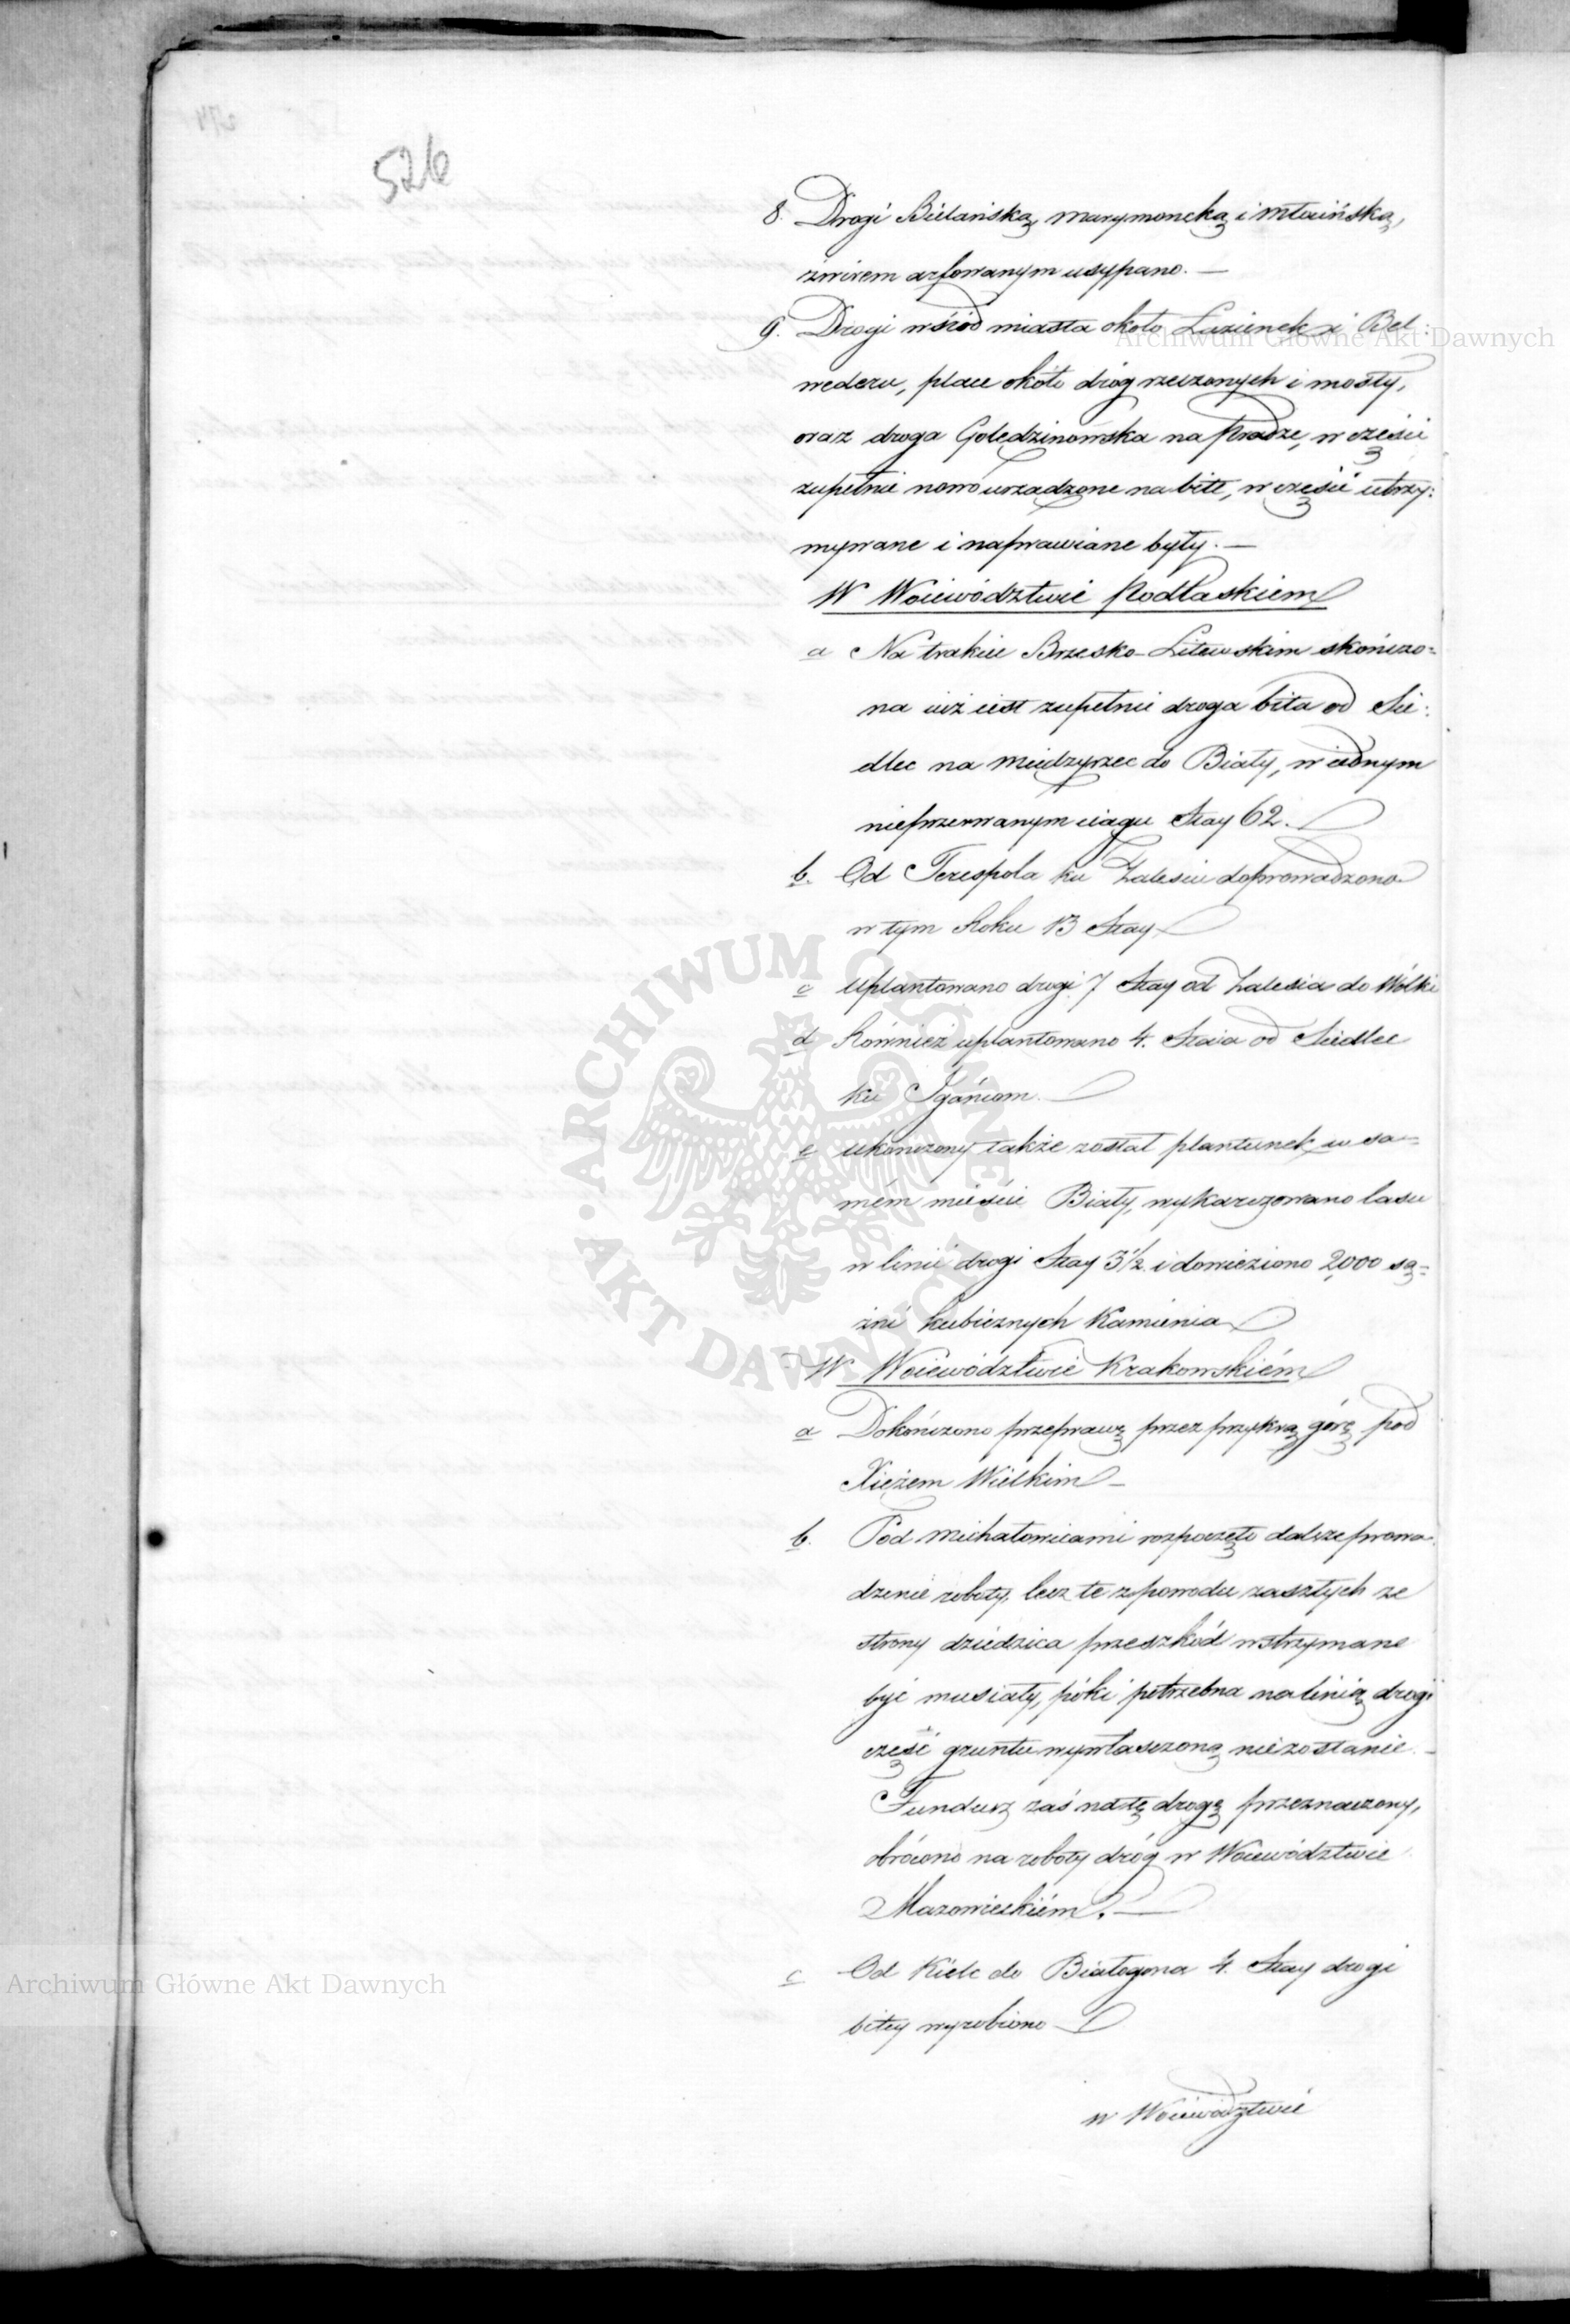 526
8. Drogi Bielańską, marymoncką i młocińską,
żwirem arfowanym usypano. —
9. Drogi wśród miasta około Łazienek i Bel:
wederu, place około dróg rzeczonych i mosty,
oraz droga Golędzinowska na Pradze, w części
zupełnie nowo urządzone na bite, w części utrzy:
mywane i naprawiane były. —
W Woiewództwie Podlaskiem
a Na trakcie Brzesko-Litewskim skończo=
na iuż iest zupełnie droga bita od Sie:
dlec na Międzyrzec do Biały, w iednym
nieprzerwanym ciągu Stay 62.
b. Od Terespola ku Zalesiu doprowadzono
w tym Roku 13 Stay
c Uplantowano drogi 7 Stay od Zalesia do Wólki
d Również uplantowano 4. Staia od Siedlec
ku Iganiom. —
e ukończony także został plantunek w sa=
mém mieście Biały, wykarczowano lasu
w linii drogi Stay 3½ i dowieziono 2,000 są=
żni kubicznych Kamienia
W Woiewództwie Krakowskiém
a Dokończono przeprawę przez przykrą górę pod
Xiężem Wielkim —
b. Pod Michałowicami rozpoczęto dalsze prowa:
dzenie roboty, lecz te z powodu zaszłych ze
strony dziedzica przeszkód wstrzymane
być musiały, póki potrzebna na linią drogi
część gruntu wywłaszczoną niezostanie. —
Fundusz zaś na tę drogę przeznaczony,
obrócono na roboty dróg w Woiewództwie
Mazowieckiém. —
c Od Kielc do Białogona 4. Stay drogi
bitey wyrobiono —
w Woiewództwie
Archiwum Główne Akt Dawnych
Archiwum Główne Akt Dawnych
ARCHIWUM GŁÓWNE · AKT DAWNYCH ·